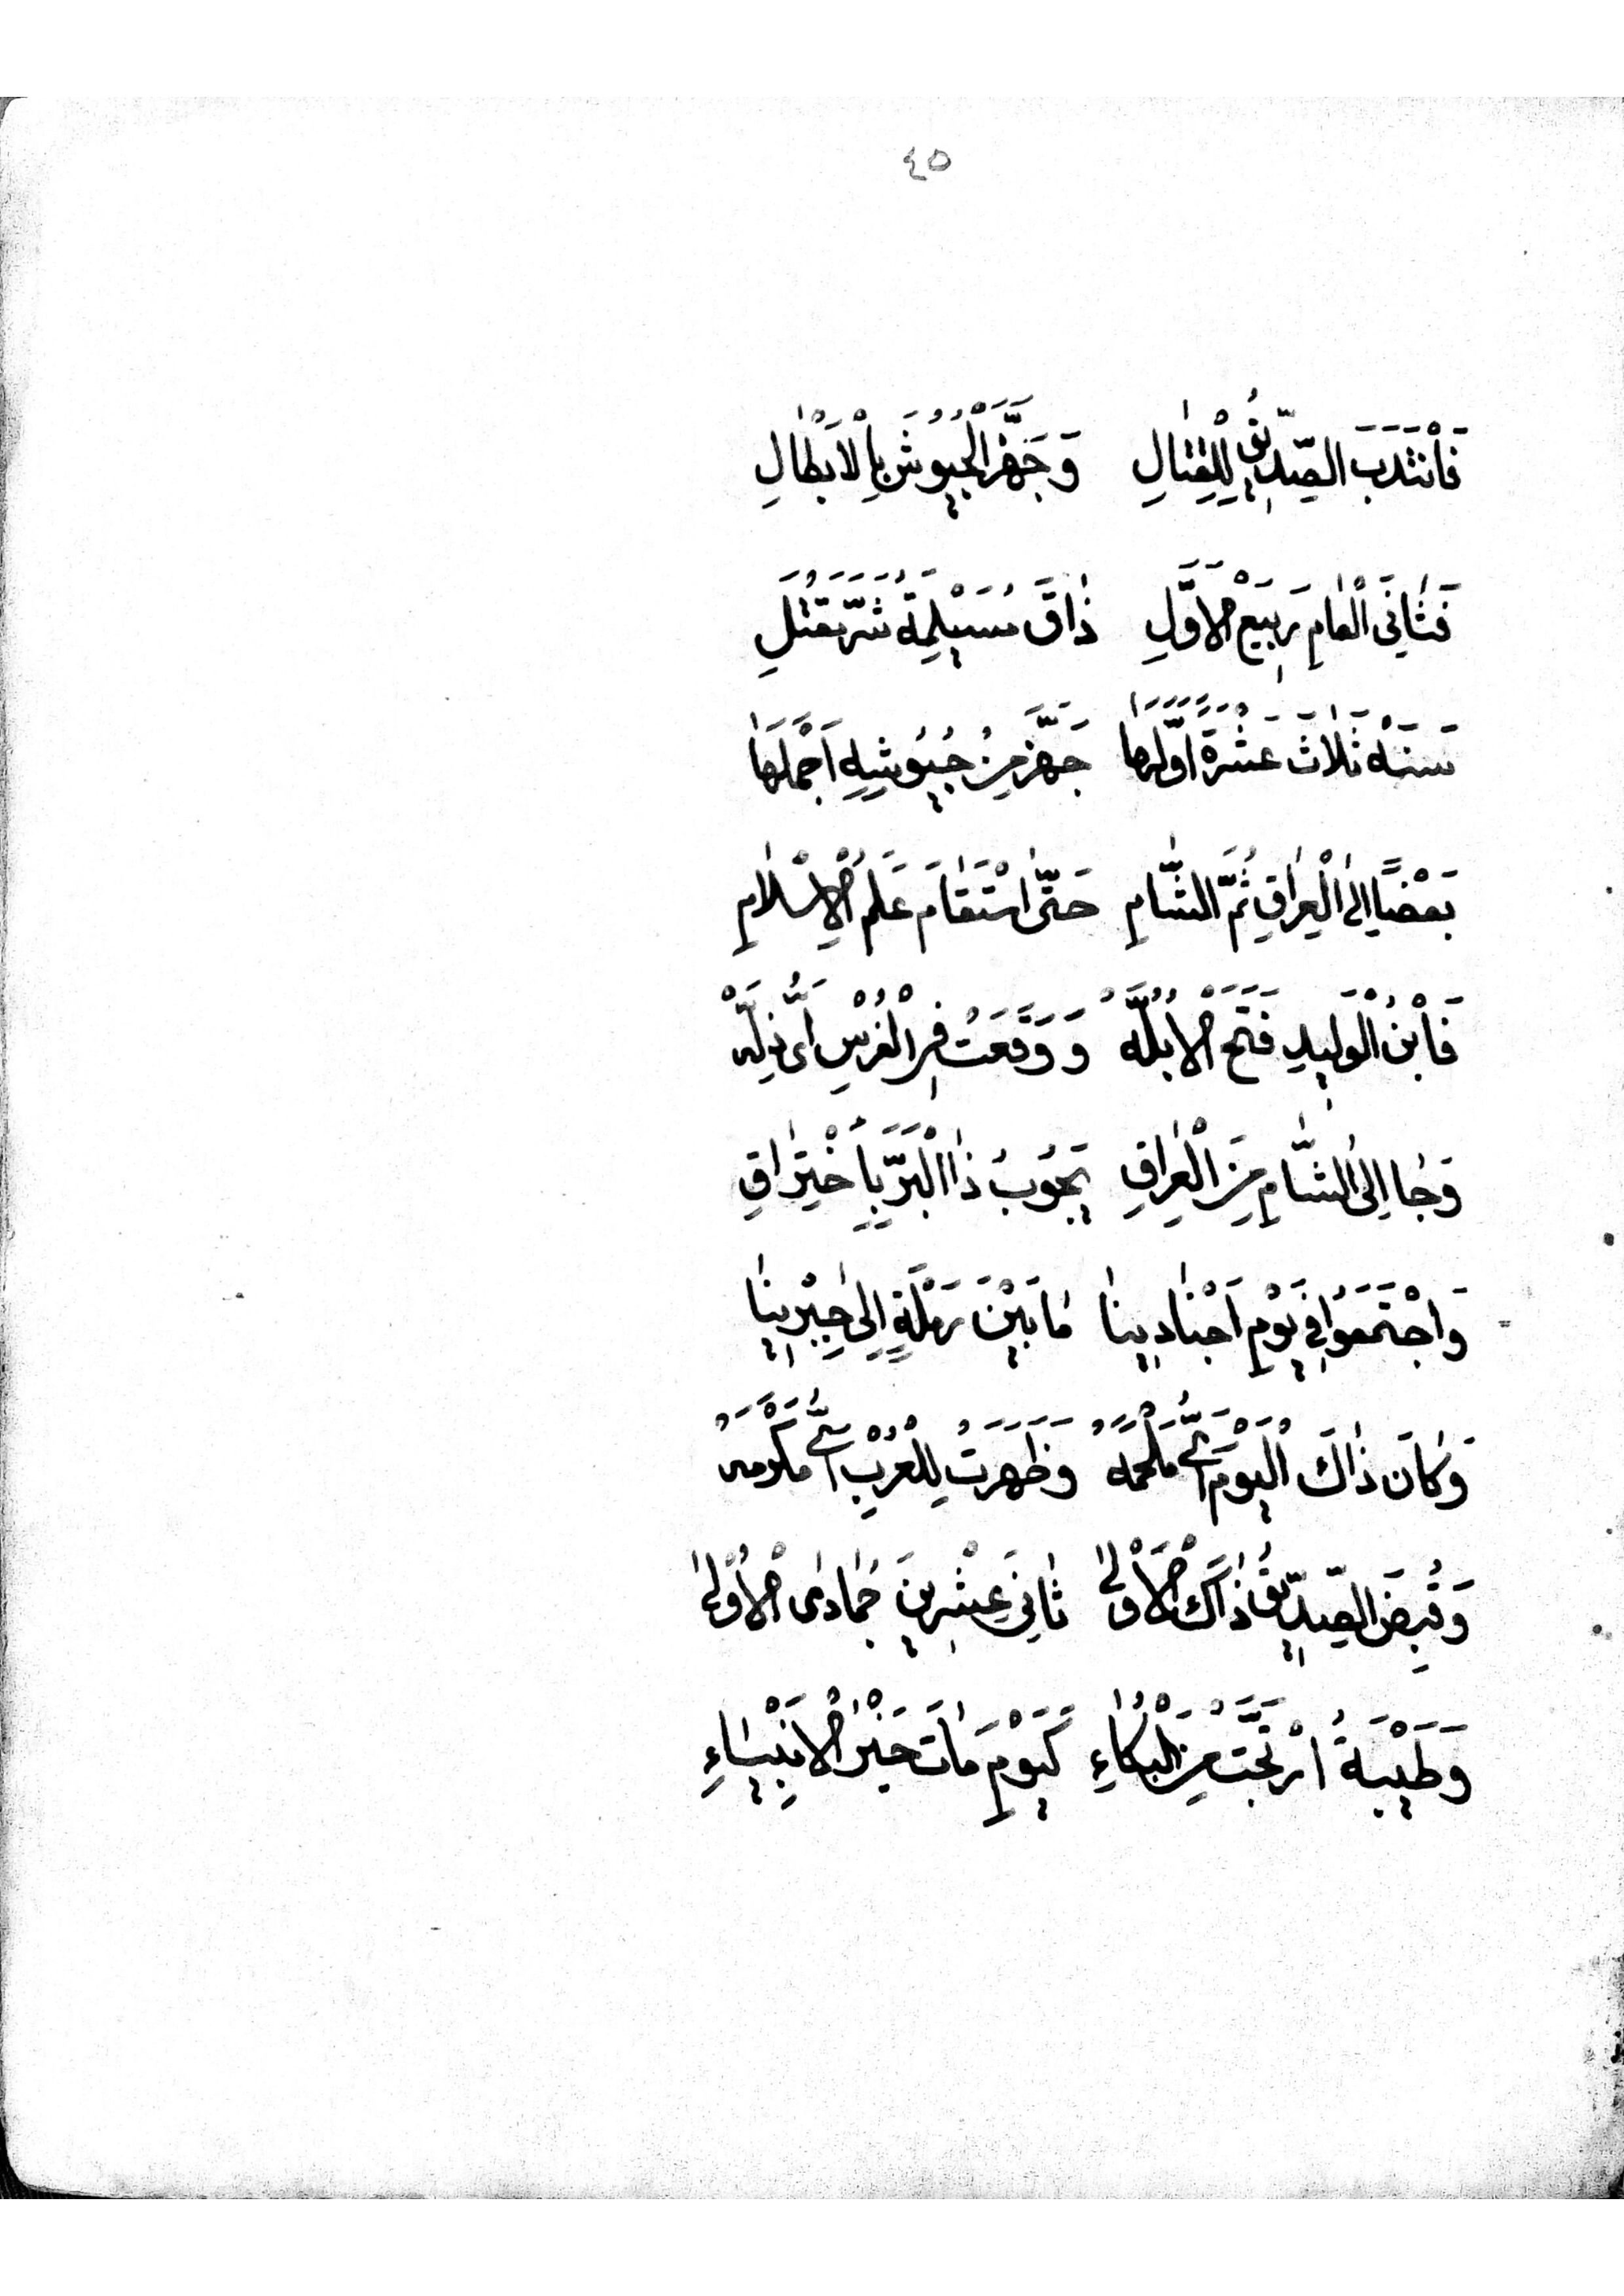 ٤٥
فَانْتَدَبَ الصِّدِّيقُ لِلْقِتَالِ وَجَهَّزَ الْجُيُوشَ بِالْاَبْطَالِ
فَثَانِىَ الْعَامِ رَبِيْعَ الْاَوَّلِ ذَاقَ مُسَيْلِمَةُ شَرَّ مَقْتَلِ
سَنَةْ ثَلَاثَ عَشْرَةً اَوَّلَهَا جَهَّزَ مِنْ جُيُوشِهِ اَجْمَلَهَا
بَعْضًا اِلَى الْعِرَاقِ ثُمَّ الشَّامِ حَتَّى اسْتَقَامَ عَلَمُ الْاِسْلَامِ
فَابْنُ الْوَلِيدِ فَتَحَ الْاُبُلَّهْ وَوَقَعَتْ فِى الْفُرْسِ اَىُّ ذِلَّهْ
وَجَا اِلَى الشَّامِ مِنَ الْعِرَاقِ يَجُوبُ ذَا الْبَرَّ بِاخْتِرَاقِ
وَاجْتَمَعُوا فِي يَوْمِ اَجْنَادِينَا مَا بَيْنَ رَمْلَةٍ اِلَى جِبْرِينَا
وَكَانَ ذَاكَ الْيَوْمَ اَىُّ مَلْحَمَهْ وَظَهَرَتْ لِلْعُرْبِ اَىُّ مَكْرُمَهْ
وَقُبِضَ الصِّدِّيقُ ذَاكَ الْاَوْلَى ثَانِىَ عِشْرِينَ جُمَادَى الْاُوْلَى
وَطَيْبَةُ ارْتَجَّتْ مِنَ الْبُكَاءِ كَيَوْمِ مَاتَ خَيْرُ الْاَنْبِيَاءِ